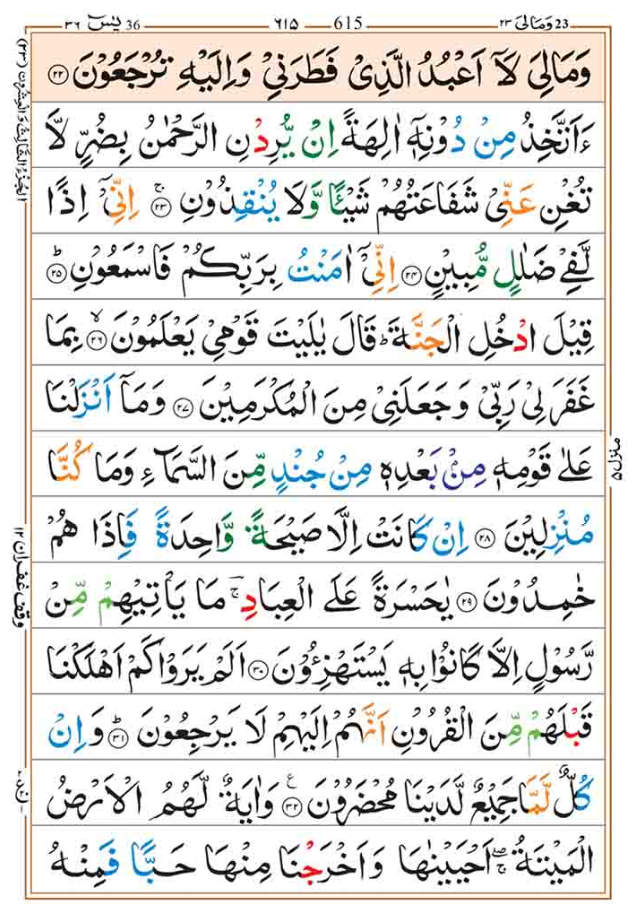 يٰسٓ 36 ٣٦
615 ٦١٥
وَمَالِىَ 23 ٢٣
وَمَالِىَ لَاۤ اَعْبُدُ الَّذِىْ فَطَرَنِىْ وَاِلَيْهِ تُرْجَعُوْنَ ۝٢٢
ءَاَتَّخِذُ مِنْ دُوْنِهٖۤ اٰلِهَةً اِنْ يُّرِدْنِ الرَّحْمٰنُ بِضُرٍّ لَّا
تُغْنِ عَنِّىْ شَفَاعَتُهُمْ شَيْـًٔا وَّلَا يُنْقِذُوْنِ ۚ‏۝٢٣ اِنِّىْۤ اِذًا
لَّفِىْ ضَلٰلٍ مُّبِيْنٍ ۝٢٤ اِنِّىْۤ اٰمَنْتُ بِرَبِّكُمْ فَاسْمَعُوْنِ ؕ۝٢٥
قِيْلَ ادْخُلِ الْجَنَّةَ ؕ قَالَ يٰلَيْتَ قَوْمِىْ يَعْلَمُوْنَ ۙ۝٢٦ بِمَا
غَفَرَ لِىْ رَبِّىْ وَجَعَلَنِىْ مِنَ الْمُكْرَمِيْنَ ۝٢٧ وَمَاۤ اَنْزَلْنَا
عَلٰى قَوْمِهٖ مِنْۢ بَعْدِهٖ مِنْ جُنْدٍ مِّنَ السَّمَآءِ وَمَا كُنَّا
مُنْزِلِيْنَ ۝٢٨ اِنْ كَانَتْ اِلَّا صَيْحَةً وَّاحِدَةً فَاِذَا هُمْ
خٰمِدُوْنَ ۝٢٩ يٰحَسْرَةً عَلَى الْعِبَادِ ۚ مَا يَاْتِيْهِمْ مِّنْ
رَّسُوْلٍ اِلَّا كَانُوْا بِهٖ يَسْتَهْزِءُوْنَ ۝٣٠ اَلَمْ يَرَوْا كَمْ اَهْلَكْنَا
قَبْلَهُمْ مِّنَ الْقُرُوْنِ اَنَّهُمْ اِلَيْهِمْ لَا يَرْجِعُوْنَ ؕ۝٣١ وَاِنْ
كُلٌّ لَّمَّا جَمِيْعٌ لَّدَيْنَا مُحْضَرُوْنَ ۝٣٢ وَاٰيَةٌ لَّهُمُ الْاَرْضُ
الْمَيْتَةُ ۖۚ اَحْيَيْنٰهَا وَاَخْرَجْنَا مِنْهَا حَبًّا فَمِنْهُ
الجُزءُ الثَّالِثُ وَالْعِشْرُون (٢٣)
وقف غفران ١٢
منزل ۵